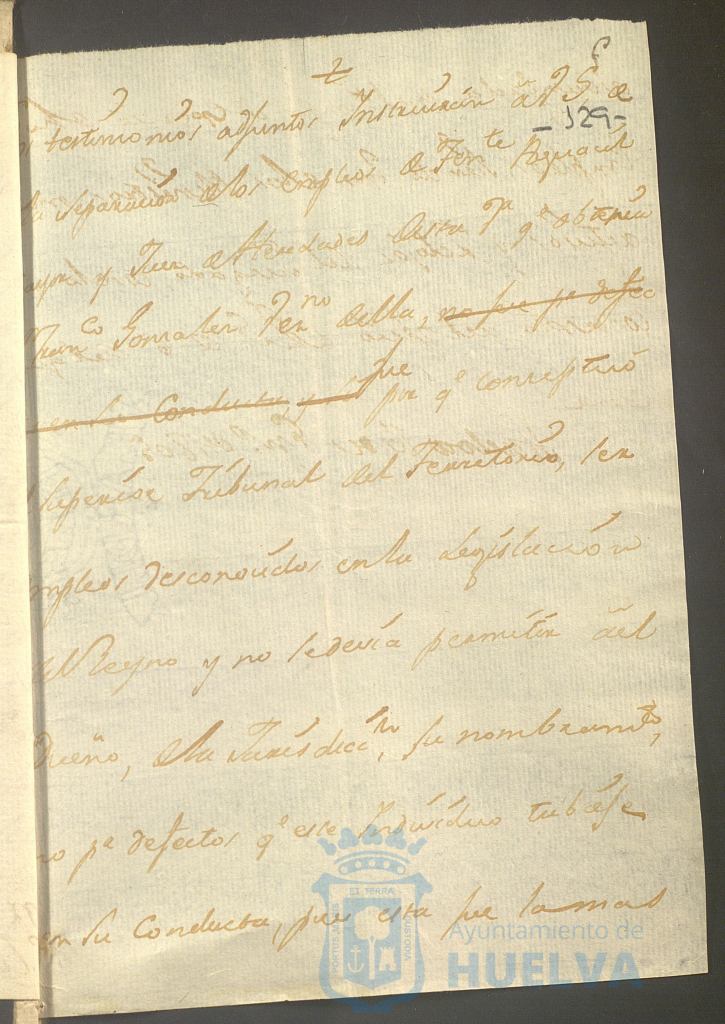 -129-
testimonios adjuntos Instruirán á V S. de
la separación de los empleos de Ten.te Alguacil
mayor y Juez de Heredades desta v.a q.e obtenia
Fran.co Gonzalez Vez.no della, no fue p.r defec
en su Conducta, y si fue por q.e conceptuó
Superior Tribunal del Territorio, ser
empleos desconocidos en la Legislación
del Reyno y no se devia permitir al
Dueño, de la Jurisdicc.n, su nombram.to,
no p.r defectos q.e este Individuo tubiese
en su Conducta, pues esta fue la mas
ET TERRA
PORTUS MARIS
CUSTODIA
Ayuntamiento de
HUELVA